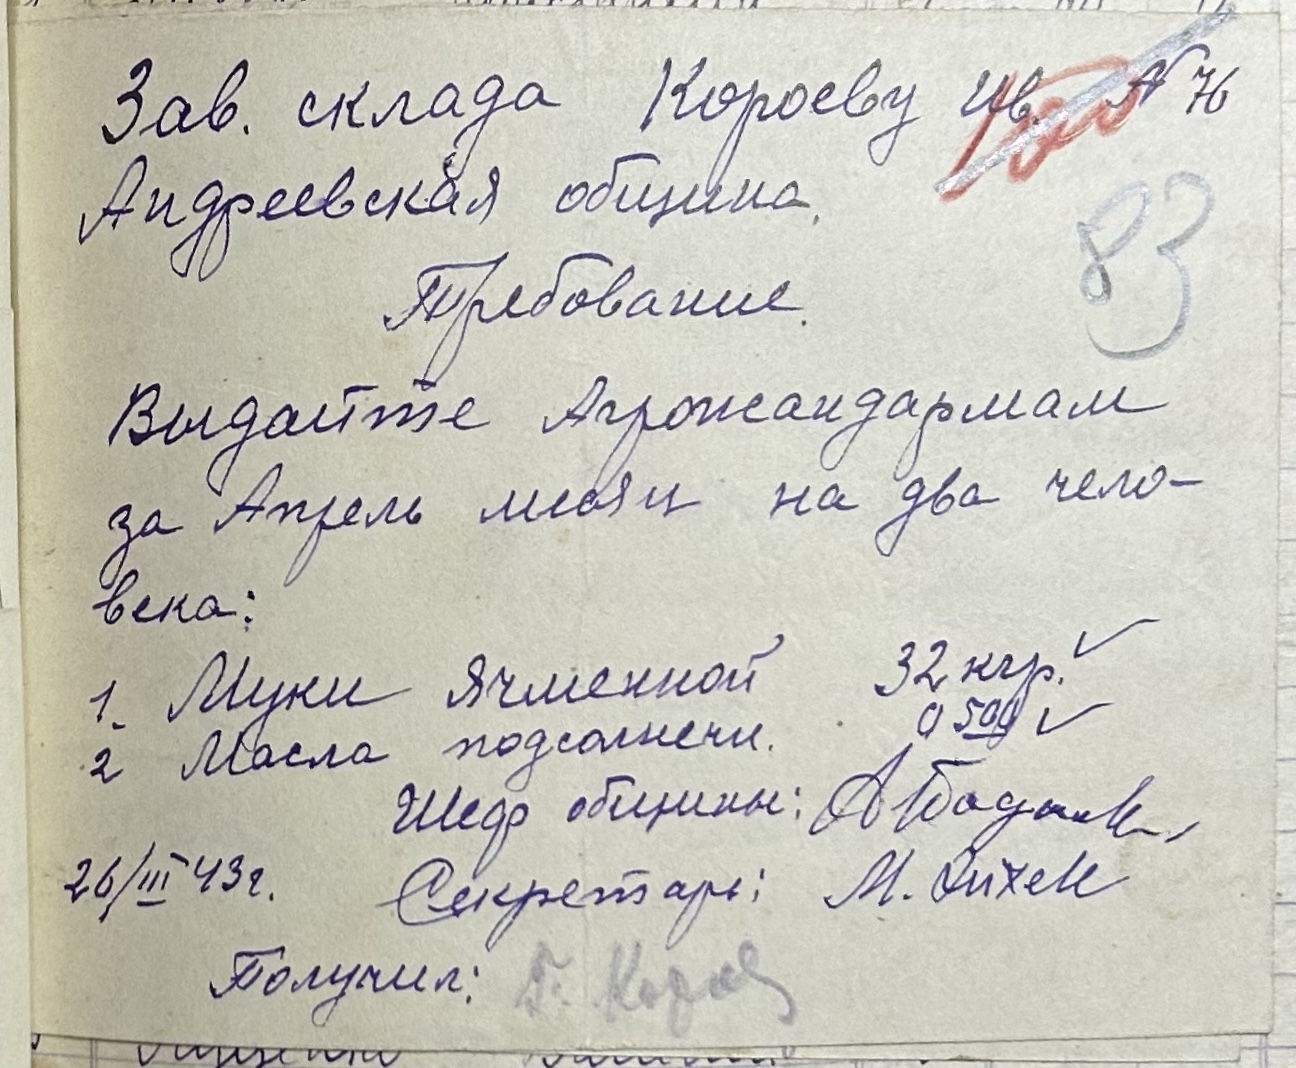 Зав. склада Короеву Ив. № 76
Андреевская община.
83
Требование.
Выдайте Агрожандармам
за Апрель месяц на два чело-
века:
1. Муки ячменной 32 кгр. ✓
2 Масла подсолнечн. 0 500 ✓
Шеф общины:
26/III 43г. Секретарь: М.
Получил: